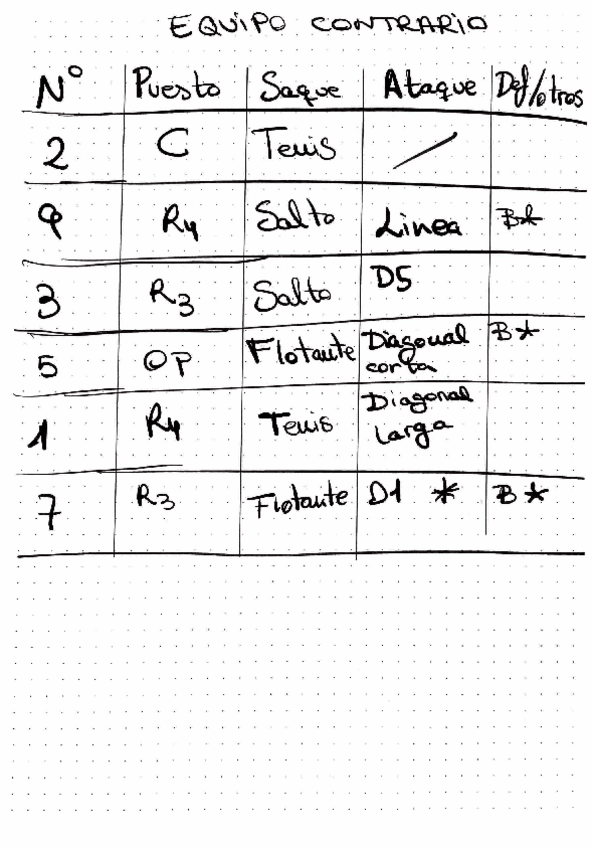 EQUIPO CONTRARIO
Nº Puesto Saque Ataque Def/otros
2 C Tenis /
9 R4 Salto Linea B*
3 R3 Salto D5
5 OP Flotante Diagonal corta B*
1 R4 Tenis Diagonal Larga
7 R3 Flotante D1 * B*